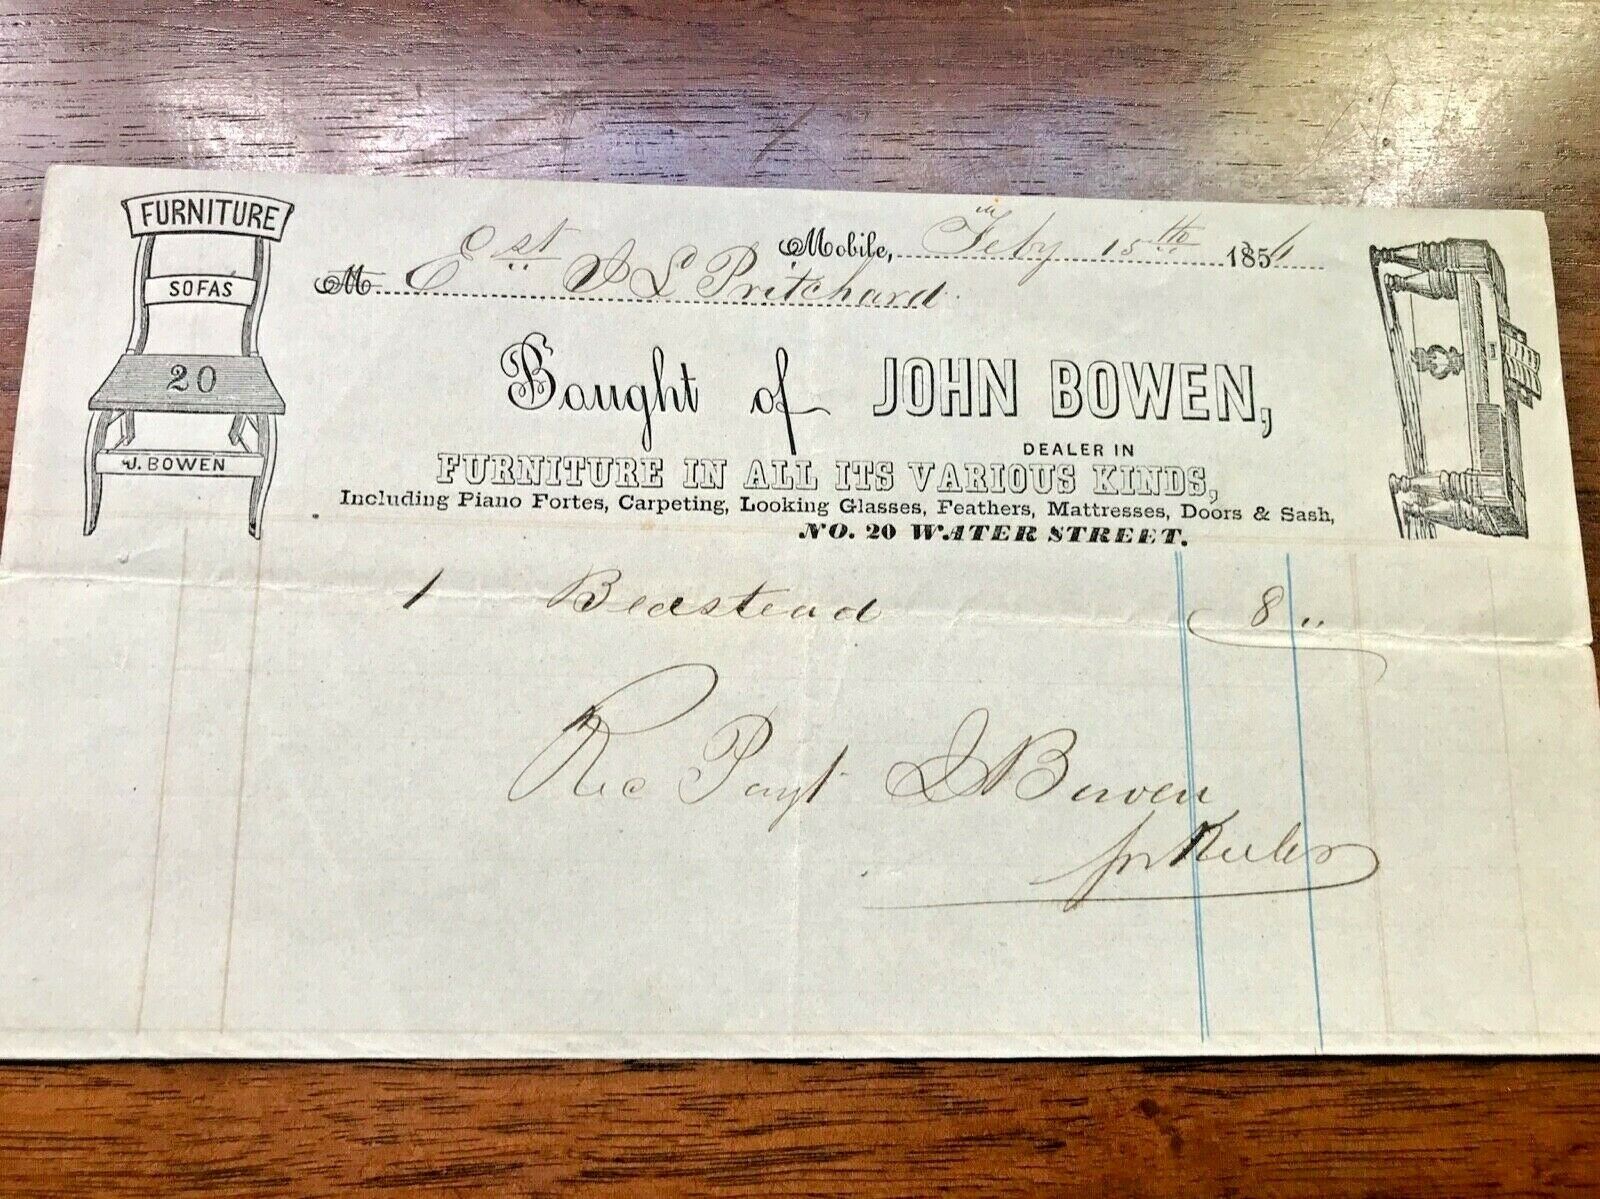 FURNITURE
SOFAS
20
J. BOWEN
Mobile, Feby 15th 185
M Est J L Pritchard
Bought of JOHN BOWEN,
DEALER IN
FURNITURE IN ALL ITS VARIOUS KINDS,
Including Piano Fortes, Carpeting, Looking Glasses, Feathers, Mattresses, Doors & Sash,
NO. 20 WATER STREET.
1 Bedstead 8 "
Rec Payt J Bowen